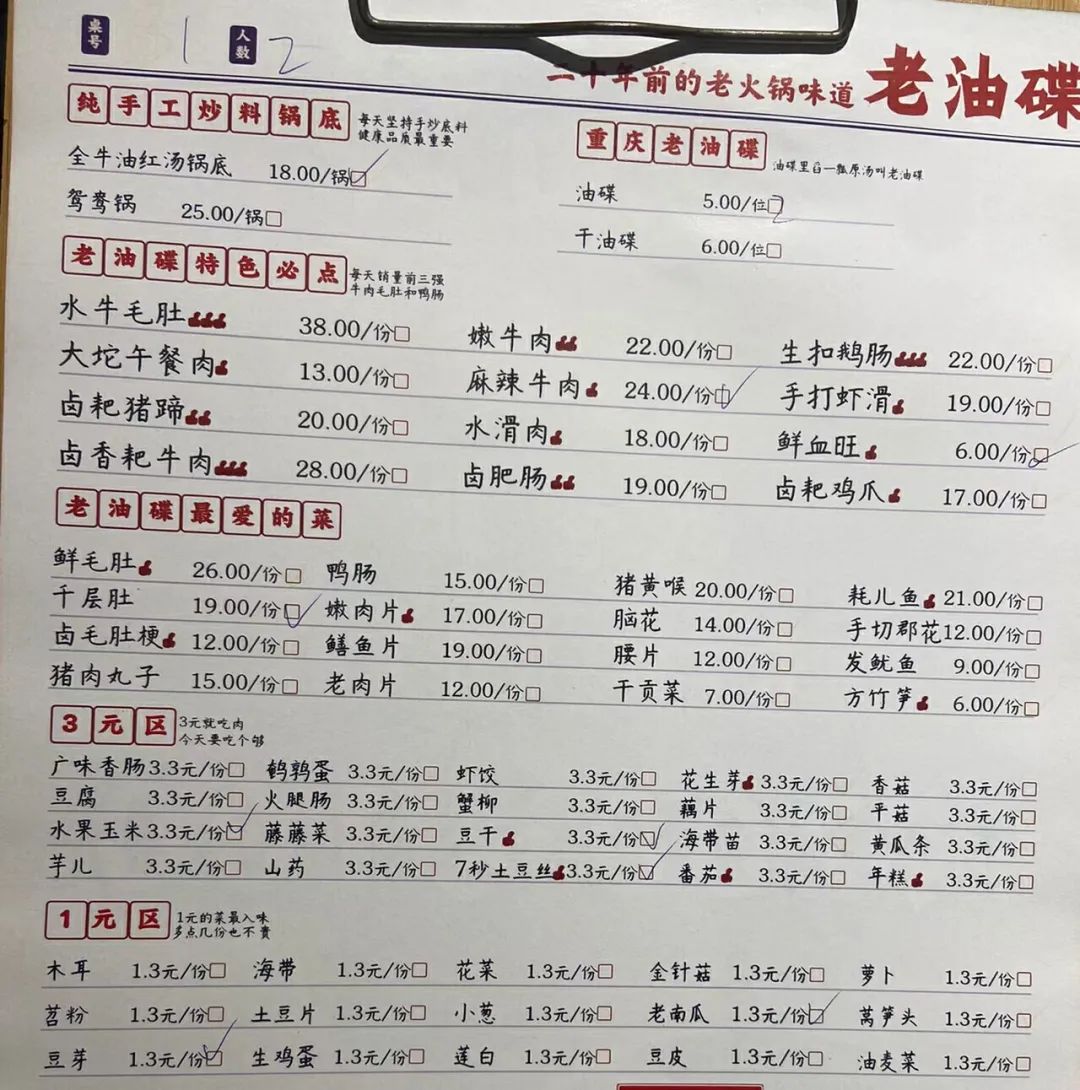 桌号 1 人数 2
二十年前的老火锅味道 老油碟
纯手工炒料锅底 每天坚持手炒底料
健康品质最重要
全牛油红汤锅底 18.00/锅☑
鸳鸯锅 25.00/锅□
重庆老油碟 油碟里舀一瓢原汤叫老油碟
油碟 5.00/位 2
干油碟 6.00/位□
老油碟特色必点 每天销量前三强
牛肉毛肚和鸭肠
水牛毛肚 38.00/份□ 嫩牛肉 22.00/份□ 生扣鹅肠 22.00/份□
大坨午餐肉 13.00/份□ 麻辣牛肉 24.00/份☑ 手打虾滑 19.00/份□
卤耙猪蹄 20.00/份□ 水滑肉 18.00/份□ 鲜血旺 6.00/份☑
卤香耙牛肉 28.00/份□ 卤肥肠 19.00/份□ 卤耙鸡爪 17.00/份□
老油碟最爱的菜
鲜毛肚 26.00/份□ 鸭肠 15.00/份□ 猪黄喉 20.00/份□ 耗儿鱼 21.00/份□
千层肚 19.00/份☑ 嫩肉片 17.00/份□ 脑花 14.00/份□ 手切郡花 12.00/份□
卤毛肚梗 12.00/份□ 鳝鱼片 19.00/份□ 腰片 12.00/份□ 发鱿鱼 9.00/份□
猪肉丸子 15.00/份□ 老肉片 12.00/份□ 干贡菜 7.00/份□ 方竹笋 6.00/份□
3元区 3元就吃肉
今天要吃个够
广味香肠 3.3元/份□ 鹌鹑蛋 3.3元/份□ 虾饺 3.3元/份□ 花生芽 3.3元/份□ 香菇 3.3元/份□
豆腐 3.3元/份□ 火腿肠 3.3元/份□ 蟹柳 3.3元/份□ 藕片 3.3元/份□ 平菇 3.3元/份□
水果玉米 3.3元/份☑ 藤藤菜 3.3元/份□ 豆干 3.3元/份☑ 海带苗 3.3元/份□ 黄瓜条 3.3元/份□
芋儿 3.3元/份□ 山药 3.3元/份□ 7秒土豆丝 3.3元/份☑ 番茄 3.3元/份□ 年糕 3.3元/份□
1元区 1元的菜最入味
多点几份也不贵
木耳 1.3元/份□ 海带 1.3元/份□ 花菜 1.3元/份□ 金针菇 1.3元/份□ 萝卜 1.3元/份□
苕粉 1.3元/份□ 土豆片 1.3元/份□ 小葱 1.3元/份□ 老南瓜 1.3元/份☑ 莴笋头 1.3元/份□
豆芽 1.3元/份☑ 生鸡蛋 1.3元/份□ 莲白 1.3元/份□ 豆皮 1.3元/份□ 油麦菜 1.3元/份□